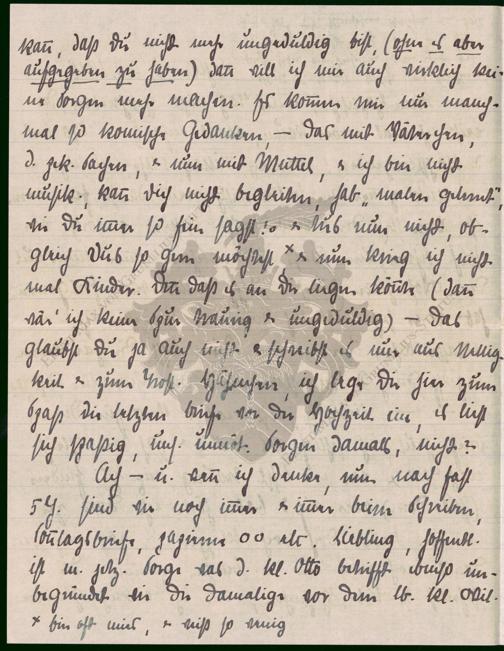 kann, daß Du nicht mehr ungeduldig bist, (ohne es aber
aufgegeben zu haben) dann will ich mir auch wirklich kei-
ne Sorgen mehr machen. Es kommen mir nur manch-
mal so komische Gedanken, — das mit Väterchen,
d. gek. Sachen, & nun mit Muttel, & ich bin nicht
musik., kann Dich nicht begleiten, hab „malen gelernt“,
wie Du immer so fein sagst! & tu's nun nicht, ob-
gleich Du's so gern möchtest × & nun krieg ich nicht
mal Kinder. Denn daß es an Dir liegen könnte (dann
wär' ich keine Spur traurig & ungeduldig) — das
glaubst Du ja auch nicht & schreibst es nur aus
keit & zum Trost. ich lege Dir hier zum
Spaß die letzten Briefe vor der Hochzeit ein, es liest
sich spaßig, uns. unnöt. Sorgen damals, nicht?
Ach — u. wenn ich denke, nun nach fast
5 J. sind wir noch immer & immer beim Schreiben,
Sonntagsbriefe, 00 etc. Liebling, hoffentl.
ist m. jetz. Sorge was d. kl. Otto betrifft ebenso un-
begründet wie die damalige vor dem lb. kl.
× bin oft müd, & weiß so wenig